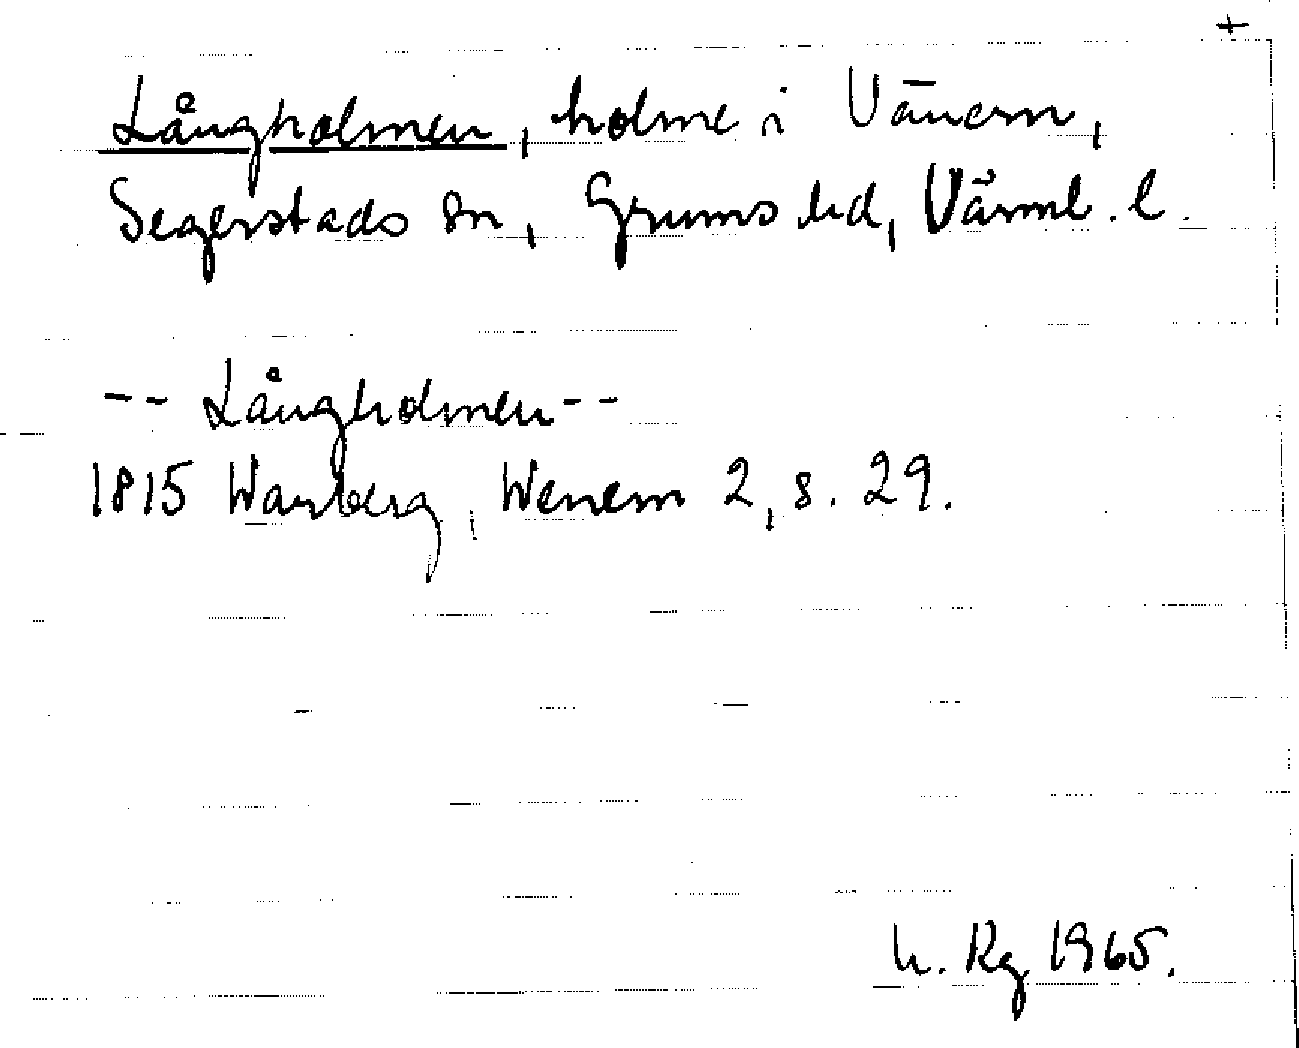 +
Långholmen, holme i Vänern,
Segerstads sn, Grums hd, Värml. l.
-- Långholmen --
1815 Warberg, Wenern 2, s. 29.
h. Rg 1965.